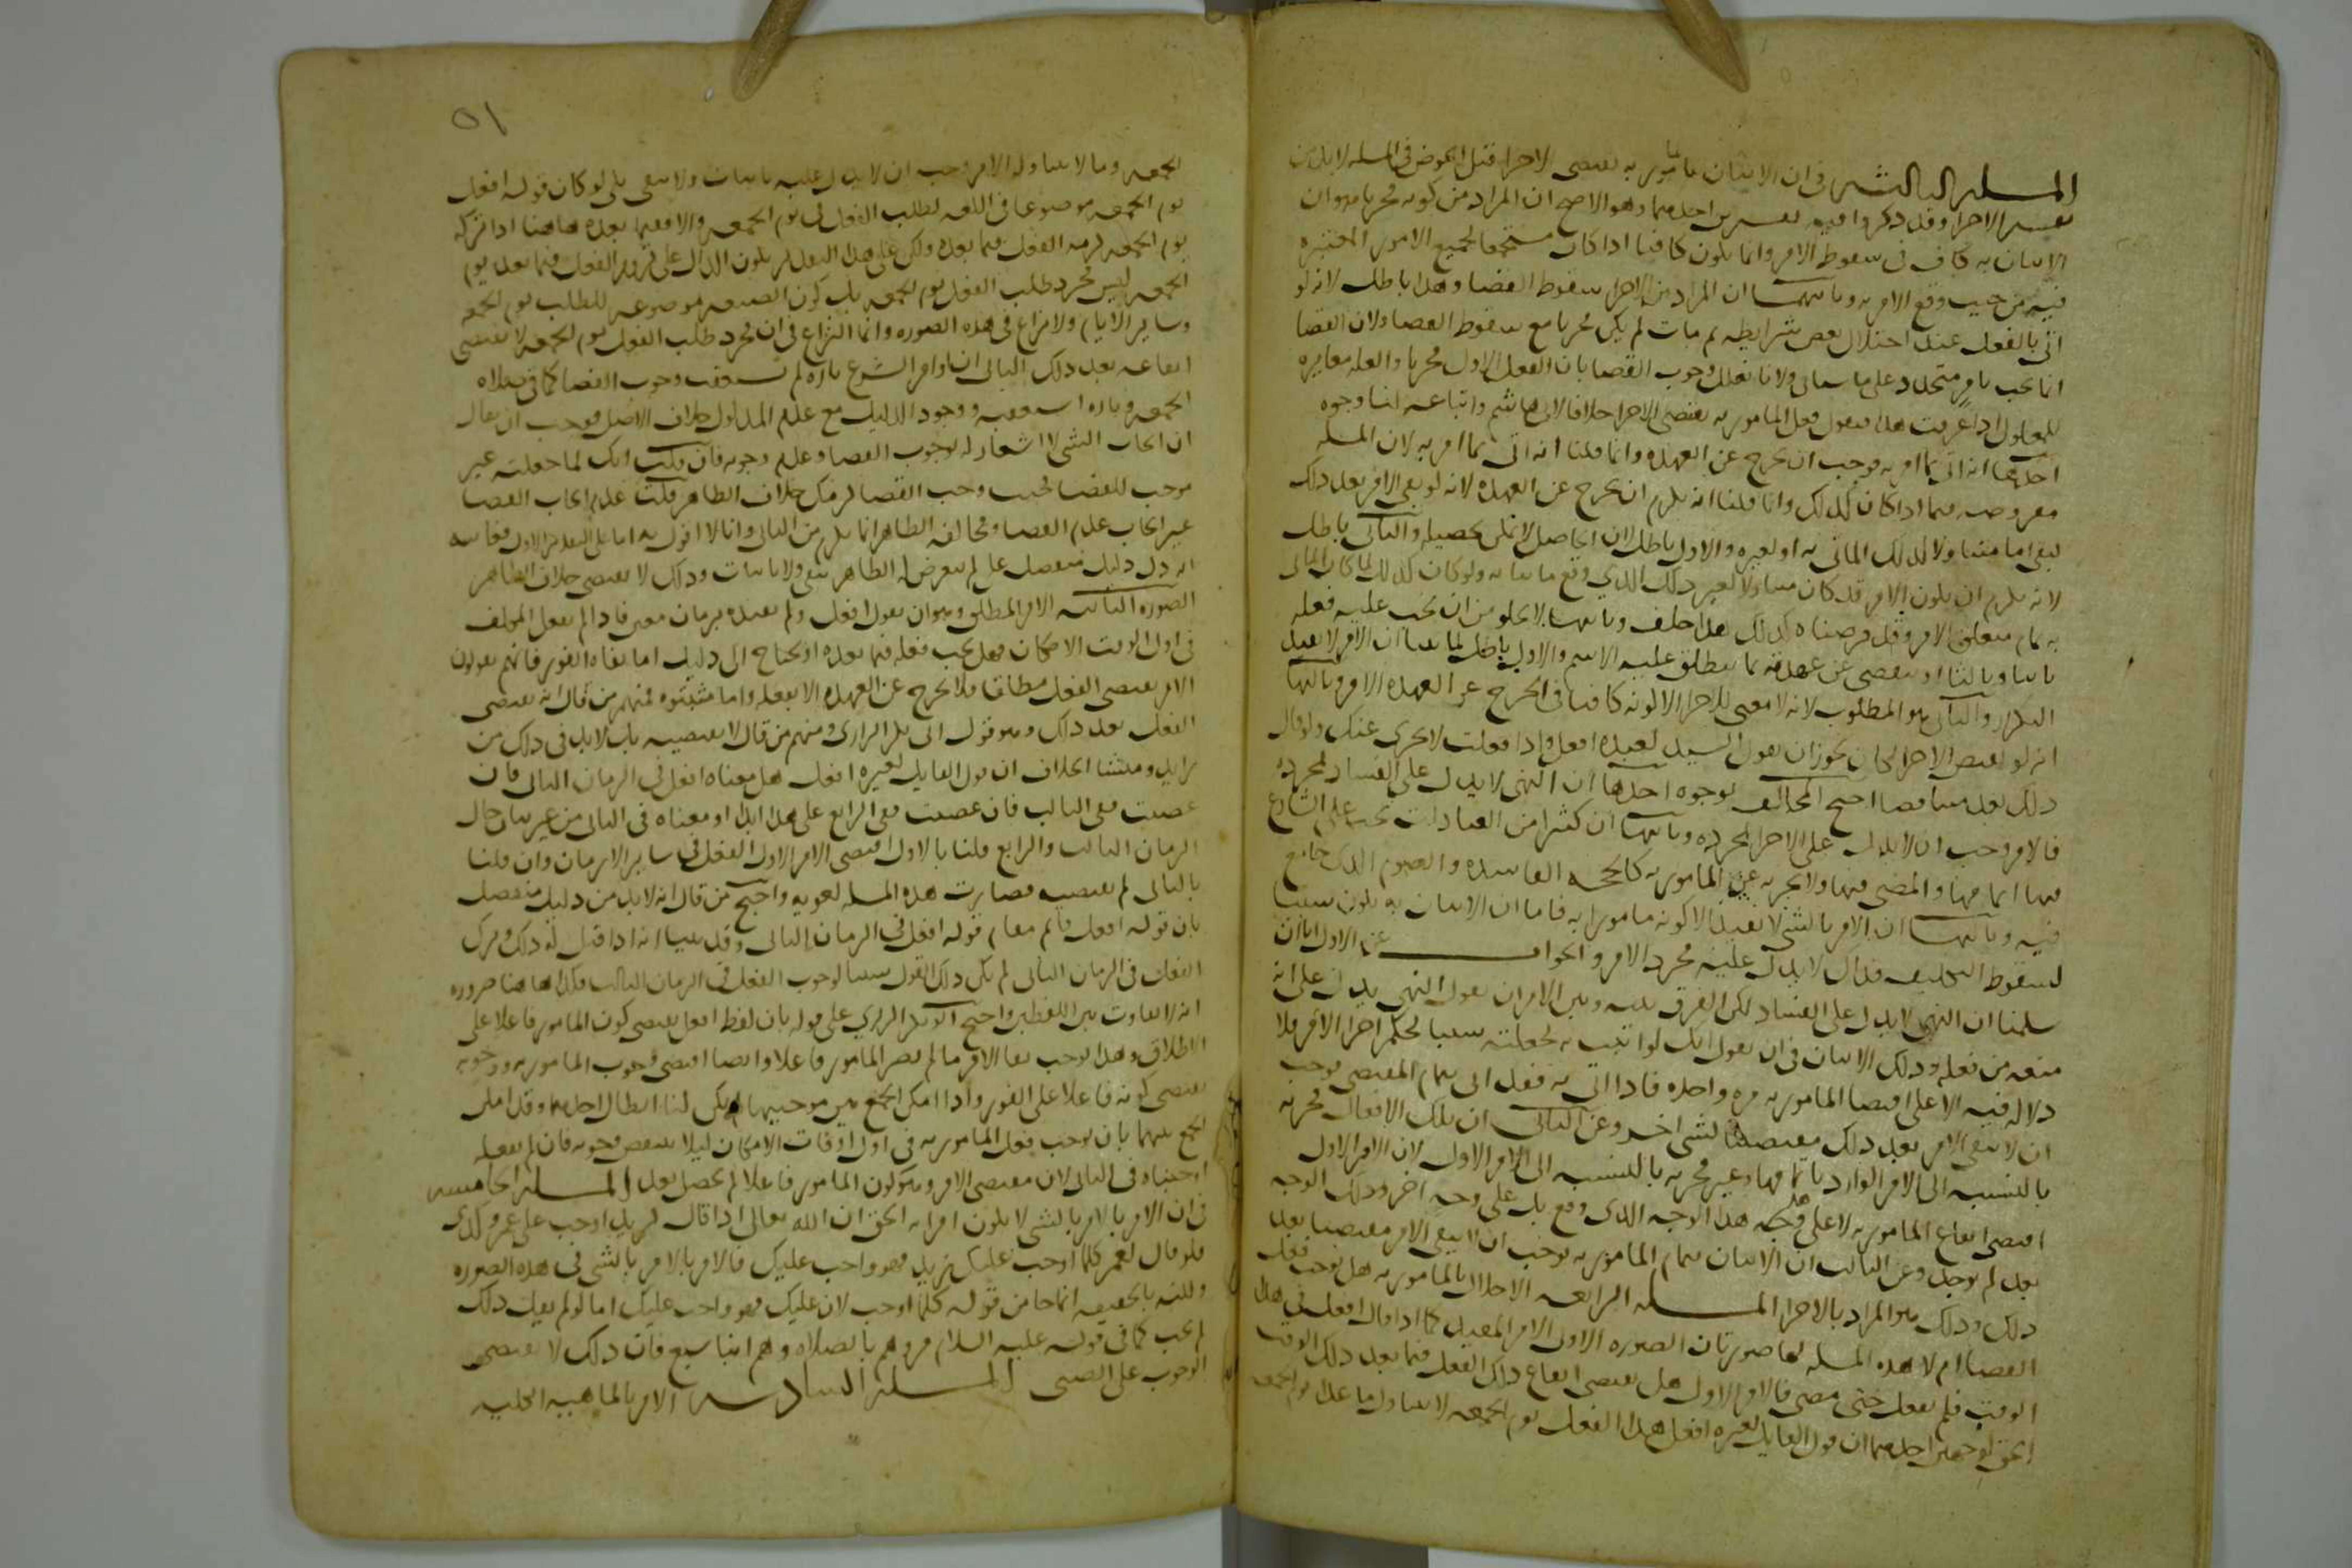 المسلة الثالثة في ان الاتيان بالمامور به يقتضي الاجزا قبل الخوض في المسله لابد من
تفسير الاجزا وقد ذكروا فيه تفسيرين احدهما وهو الاصح ان المراد من كونه مجزيا هو ان
الاتيان به كاف في سقوط الامر وانما يكون كافيا اذا كان مستجمعا لجميع الامور المعتبره
فيه من حيث وقع الامر به وثانيهما ان المراد من الاجزا سقوط القضا وهذا باطل لانه لو
اتى بالفعل عند اختلال بعض شرايطه ثم مات لم يكن مجزيا مع سقوط القضا ولان القضا
انما يجب بامر متجدد على ما سياتي ولانا نعلل وجوب القضا بان الفعل الاول مجزيا والعله مغايره
للمعلول اذا عرفت هذا فنقول فعل المامور به يقتضي الاجزا خلافا لابي هاشم واتباعه لنا وجوه
احدها انه اتى بما امر به فوجب ان يخرج عن العهده وانما قلنا انه اتى بما امر به لان المسله
مفروضه فيما اذا كان كذلك وانما قلنا انه يلزم ان يخرج عن العهده لانه لو بقي الامر بعد ذلك
لبقي اما متناولا لذلك الماتي به او لغيره والاول باطل لان الحاصل لا يمكن تحصيله والثاني باطل
لانه يلزم ان يكون الامر قد كان متناولا لغير ذلك الذي وقع ماتيا به ولو كان كذلك لما كان الماتي
به تمام متعلق الامر وقد فرضناه كذلك هذا خلف وثانيها لا يخلو من ان يجب عليه فعله
ثانيا وثالثا او ينقضي عن عهدته بما ينطلق عليه الاسم والاول باطل لما بينا ان الامر لا يفيد
التكرار والثاني هو المطلوب لانه لا معنى للاجزا الا كونه كافيا في الخروج عن العهده الامر وثالثها
انه لو لم يقتض الاجزا لكان يجوز ان يقول السيد لعبده افعل واذا فعلت لا يجزي عنك ولو قال
ذلك لعد متناقضا احتج المخالف بوجوه احدها ان النهي لا يدل على الفساد لمجرده
فالامر وجب ان لا يدل على الاجزا لمجرده وثانيها ان كثيرا من العبادات يجب على الشارع
فيها اتمامها والمضي فيها ولا يجزيه عن المامور به كالحجه الفاسده والصوم الذي جامع
فيه وثالثها ان الامر بالشي لا يفيد الا كونه مامورا به فاما ان الاتيان به يكون سببا
لسقوط التكليف فذاك لا يدل عليه مجرد الامر والجواب عن الاول انا ان
سلمنا ان النهي لا يدل على الفساد لكن الفرق بينه وبين الامر ان نقول النهي يدل على انه
منعه من فعله وذلك لا ينافي ان يقول انك لو اتيت به لجعلته سببا لحكم اخر اما الامر فلا
دلاله فيه الا على اقتضا المامور به مره واحده فاذا اتى به فقد اتى بتمام المقتضى فوجب
ان لا يبقى الامر بعد ذلك مقتضيا لشي اخر وعن الثاني ان تلك الافعال مجزيه
بالنسبه الى الامر الوارد باتمامها وغير مجزيه بالنسبه الى الامر الاول لان الامر الاول
اقتضى ايقاع المامور به لا على وجه هذا الوجه الذي وقع بل على وجه اخر وذلك الوجه
بعد لم يوجد وعن الثالث ان الاتيان بتمام المامور به يوجب ان لا يبقى الامر مقتضيا بعد
ذلك وذلك هو المراد بالاجزا المسله الرابعه الاخلال بالمامور به هل يوجب فعل
القضا ام لا هذه المسله لها صورتان الصوره الاولى الامر المقيد كما اذا قال افعل في هذا
الوقت فلم يفعل حتى مضى فالامر الاول هل يقتضي ايقاع ذلك الفعل فيما بعد ذلك الوقت
الحق لوجهين احدهما ان قول القايل لغيره افعل هذا الفعل يوم الجمعه لا يتناول ما عدا يوم الجمعه
٥١
الجمعه وما لا يتناوله الامر وجب ان لا يدل عليه باثبات ولا بنفي بلى لو كان قوله افعل
يوم الجمعه موضوعا في اللغه لطلب الفعل في يوم الجمعه والا ففيما بعده هاهنا اذا تركه
يوم الجمعه لزمه الفعل فيما بعده ولكن على هذا التقدير يكون الدال على لزوم الفعل فيما بعد يوم
الجمعه ليس مجرد طلب الفعل يوم الجمعه بل كون الصيغه موضوعه للطلب يوم الجمعه
وساير الايام ولا نزاع في هذه الصوره وانما النزاع في ان مجرد طلب الفعل يوم الجمعه لا يقتضي
ايقاعه بعد ذلك الثاني ان اوامر الشرع تاره لم تستعقب وجوب القضا كما في صلاه
الجمعه وتاره استعقبته ووجود الدليل مع عدم المدلول خلاف الاصل فوجب ان يقال
ان ايجاب الشي لا اشعار له بوجوب القضا وعدم وجوبه فان قلت انك لما جعلته غير
موجب للقضا فحيث وجب القضا لزمك خلاف الظاهر قلت عدم ايجاب القضا
غير ايجاب عدم القضا ومخالفه الظاهر انما يلزم من الثاني وانا لا اقول به اما على التقدير الاول فغايته
انه دل دليل منفصل على ما لم يتعرض له الظاهر بنفي ولا باثبات وذلك لا يقتضي خلاف الظاهر
الصوره الثانيه الامر المطلق وهو ان يقول افعل ولم يقيده بزمان معين فاذا لم يفعل المكلف
في اول الوقت الامكان فهل يجب فعله فيما بعده او يحتاج الى دليل اما نفاه الفور فانهم يقولون
الامر يقتضي الفعل مطلقا فلا يخرج عن العهده الا بفعله واما مثبتوه فمنهم من قال انه يقتضي
الفعل بعد ذلك وهو قول ابي بكر الرازي ومنهم من قال لا يقتضيه بل لابد في ذلك من
زايد ومنشا الخلاف ان قول القايل لغيره افعل هل معناه افعل في الزمان الثاني فان
عصيت ففي الثالث فان عصيت ففي الرابع على هذا ابدا او معناه في الثاني من غير بيان حال
الزمان الثالث والرابع قلنا بالاول اقتضى الامر الاول الفعل في ساير الازمان وان قلنا
بالثاني لم يقتضيه فصارت هذه المسله لغويه واحتج من قال انه لابد من دليل منفصل
بان قوله افعل قايم مقام قوله افعل في الزمان الثاني وقد بينا انه اذا قيل له ذلك وترك
الفعل في الزمان الثاني لم يكن ذلك القول سببا لوجوب الفعل في الزمان الثالث فكذا هاهنا ضروره
انه لا تفاوت بين اللفظين واحتج ابو بكر الرازي على قوله بان لفظ افعل يقتضي كون المامور فاعلا على
الاطلاق وهذا يوجب بقا الامر ما لم يصر المامور فاعلا وايضا اقتضى وجوب المامور به ووجوبه
يقتضي كونه فاعلا على الفور واذا امكن الجمع بين موجبيهما لم يكن لنا ابطال احدهما وقد امكن
الجمع بينهما بان يوجب فعل المامور به في اول اوقات الامكان ليلا ينتقض وجوبه فان لم يفعله
اوجبناه في الثاني لان مقتضى الامر وهو كون المامور فاعلا لم يحصل بعد المسلة الخامسه
في ان الامر بالامر بالشي لا يكون امرا به الحق ان الله تعالى اذا قال لزيد اوجب على عمرو كذى
فلو قال لعمر كلما اوجب عليك زيد فهو واجب عليك فالامر بالامر بالشي في هذه الصوره
ولكنه بالحقيقه انما جا من قوله كلما اوجب لان عليك فهو واجب عليك اما لو لم يقل ذلك
لم يجب كما في قوله عليه السلام مروهم بالصلاه وهم ابنا سبع فان ذلك لا يقتضي
الوجوب على الصبي المسلة السادسه الامر بالماهيه الكليه